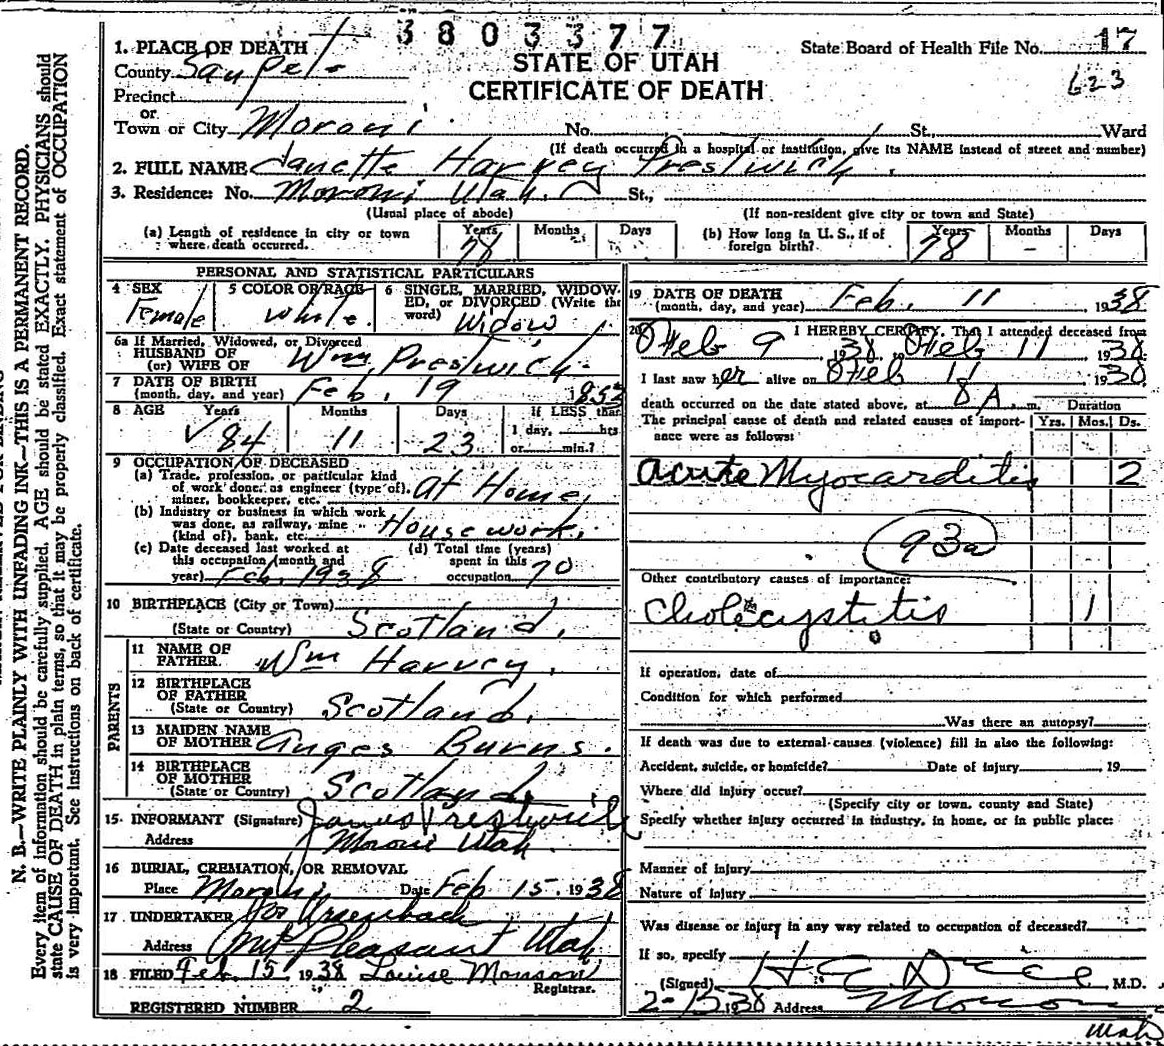 3803377
State Board of Health File No. 17
623
STATE OF UTAH
CERTIFICATE OF DEATH
1. PLACE OF DEATH
County Sanpete
Precinct
or
Town or City Moroni. No. St., Ward
(If death occurred in a hospital or institution, give its NAME instead of street and number)
2. FULL NAME Janette Harvey Prestwich.
3. Residence: No. Moroni Utah. St.,
(Usual place of abode) (If non-resident give city or town and State)
(a) Length of residence in city or town where death occurred. Years 78 Months Days
(b) How long in U. S., if of foreign birth? Years 78 Months - Days
PERSONAL AND STATISTICAL PARTICULARS
4 SEX Female
5 COLOR OR RACE white.
6 SINGLE, MARRIED, WIDOWED, or DIVORCED (Write the word) Widow
6a If Married, Widowed, or Divorced
HUSBAND OF
(or) WIFE OF Wm, Prestwich.
7 DATE OF BIRTH
(month, day, and year) Feb, 19 1853
8 AGE Years 84 Months 11 Days 23 If LESS than 1 day, hrs or min.?
9 OCCUPATION OF DECEASED
(a) Trade, profession, or particular kind of work done, as engineer (type of), miner, bookkeeper, etc. At Home,
(b) Industry or business in which work was done, as railway, mine (kind of), bank, etc. House work.
(c) Date deceased last worked at this occupation (month and year) Feb. 1938
(d) Total time (years) spent in this occupation 70
10 BIRTHPLACE (City or Town)
(State or Country) Scotland.
PARENTS
11 NAME OF FATHER. Wm Harvey.
12 BIRTHPLACE OF FATHER
(State or Country) Scotland.
13 MAIDEN NAME OF MOTHER Anges Burns.
14 BIRTHPLACE OF MOTHER
(State or Country) Scotland.
15. INFORMANT (Signature) James Prestwich
Address Moroni Utah.
16 BURIAL, CREMATION, OR REMOVAL
Place Moroni Date Feb 15. 1938
17 UNDERTAKER
Address Mt Pleasant Utah
18 FILED Feb 15 1938 Louise Monson
Registrar.
REGISTERED NUMBER 2
19 DATE OF DEATH
(month, day, and year) Feb. 11 1938
20 I HEREBY CERTIFY, That I attended deceased from
Feb 9 1938, Feb 11 1938
I last saw her alive on Feb 11 1938
death occurred on the date stated above, at 8 A. m. Duration
The principal cause of death and related causes of importance were as follows: Yrs. Mos. Ds.
Acute Myocarditis 2
93a
Other contributory causes of importance:
Cholecystitis 1
If operation, date of
Condition for which performed
Was there an autopsy?
If death was due to external causes (violence) fill in also the following:
Accident, suicide, or homicide? Date of injury 19
Where did injury occur?
(Specify city or town, county and State)
Specify whether injury occurred in industry, in home, or in public place:
Manner of injury
Nature of injury
Was disease or injury in any way related to occupation of deceased?
If so, specify
(Signed) M.D.
2-15 1938 Address Moroni
Utah
N. B.—WRITE PLAINLY WITH UNFADING INK—THIS IS A PERMANENT RECORD.
Every item of information should be carefully supplied. AGE should be stated EXACTLY. PHYSICIANS should
state CAUSE OF DEATH in plain terms, so that it may be properly classified. Exact statement of OCCUPATION
is very important. See instructions on back of certificate.